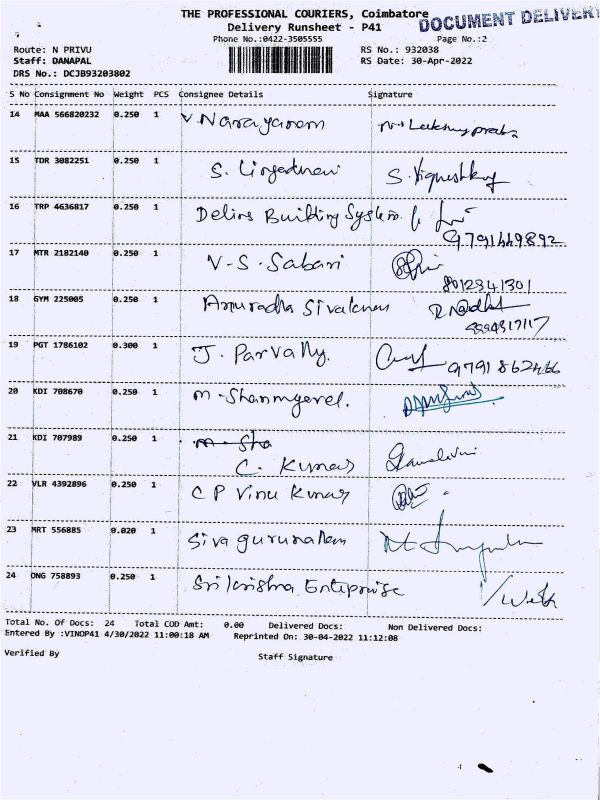 THE PROFESSIONAL COURIERS, Coimbatore
DOCUMENT DELIVERY
Delivery Runsheet - P41
Phone No.:0422-3505555
Page No.:2
Route: N PRIVU
RS No.: 932038
Staff: DANAPAL
RS Date: 30-Apr-2022
DRS No.: DCJB93203802
S No Consignment No Weight PCS Consignee Details Signature
14 MAA 566820232 0.250 1 V Narayanam
15 TDR 3082251 0.250 1 S. S. Vigneshkug
16 TRP 4636817 0.250 1 Delins Building System
9791449892
17 MTR 2182140 0.250 1 V-S-Sabari
8012341301
18 GYM 225005 0.250 1 Anuradha Sivakumar
19 PGT 1786102 0.300 1 J. Parvathy. 9791862466
20 KDI 708670 0.250 1 M-Shanmugavel.
21 KDI 707989 0.250 1 m-Sha
C. Kumar
22 VLR 4392896 0.250 1 C P Vinu Kumar
23 MRT 556885 0.020 1 Siva gurunathan
24 ONG 758893 0.250 1 Srikrishna Enterprise
Total No. Of Docs: 24 Total COD Amt: 0.00 Delivered Docs: Non Delivered Docs:
Entered By :VINOP41 4/30/2022 11:00:18 AM Reprinted On: 30-04-2022 11:12:08
Verified By Staff Signature